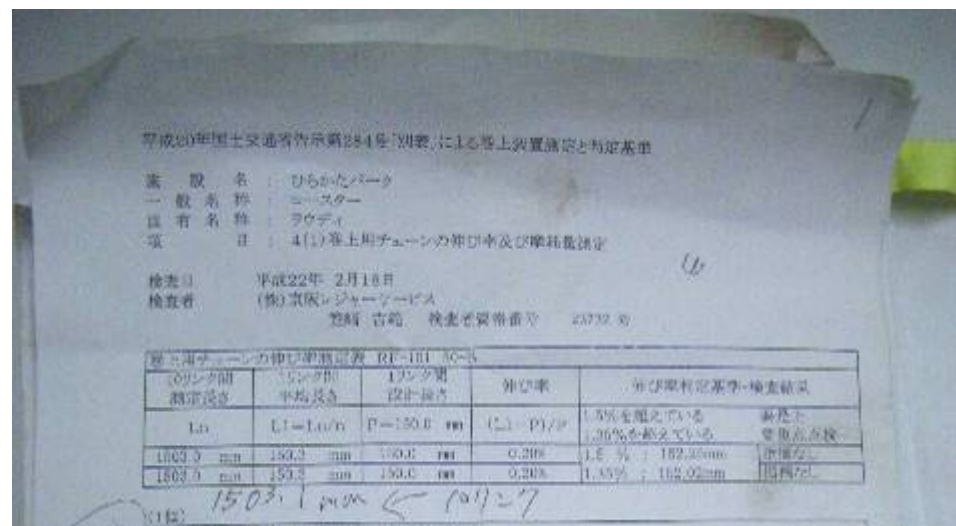 1
平成20年国土交通省告示第284号「別表」による巻上装置測定と判定基準
施設名 : ひらかたパーク
一般名称 : コースター
固有名称 : ラウディ
項目 : 4(1)巻上用チェーンの伸び率及び摩耗量測定
検査日 平成22年 2月18日
検査者 (株)京阪レジャーサービス
検査者資格番号
巻上用チェーンの伸び率測定表
10リンク間 1リンク間 1リンク間 伸び率 伸び率判定基準・検査結果
測定長さ 平均長さ 設計長さ
Ln L1=Ln/n P=150.0 mm (L1-P)/P 1.5%を超えている 要是正
を超えている 要重点点検
1503.0 mm 150.3 mm 150.0 mm 0.20% 1.5 % : 指摘なし
1503.0 mm 150.3 mm 150.0 mm 0.20% : 152.02mm 指摘なし
1503.1 mm ← 10リンク